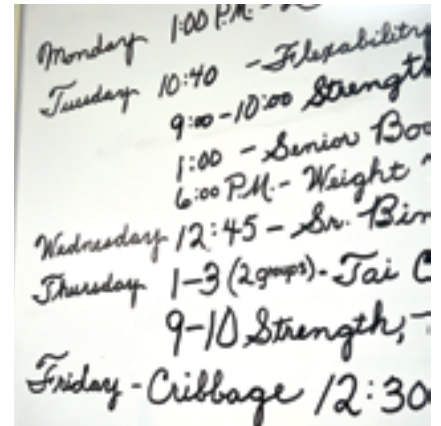 Monday 1:00 P.M. -
Tuesday 10:40 - Flexability
9:00-10:00 Strength
1:00 - Senior Boo
6:00 P.M. - Weight
Wednesday 12:45 - Sr. Bin
Thursday 1-3 (2 groups) - Tai C
9-10 Strength,
Friday - Cribbage 12:30